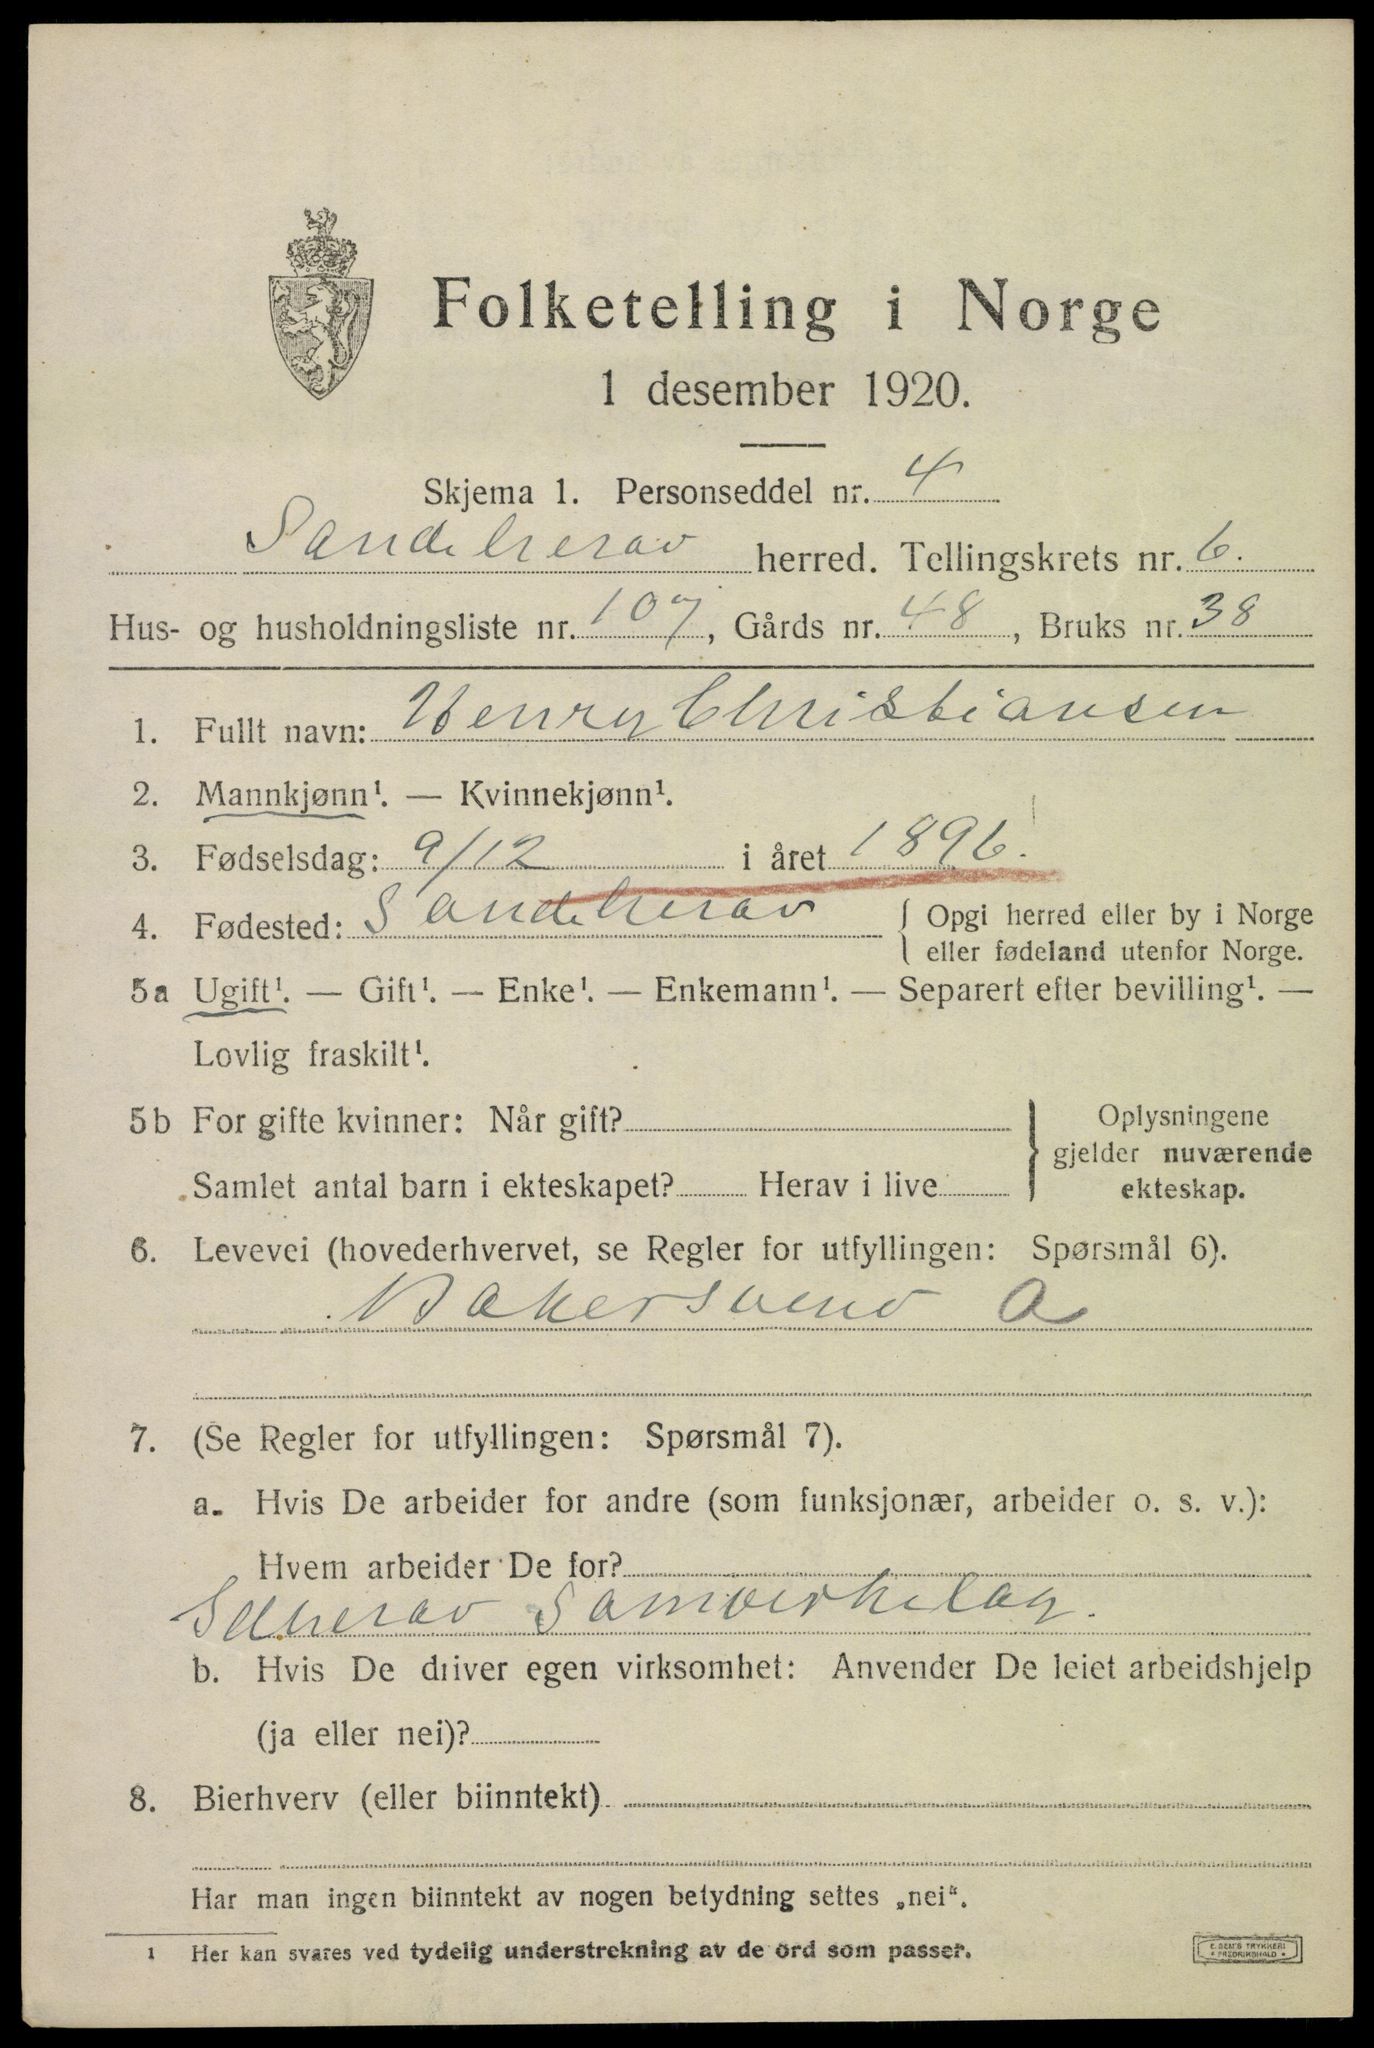 Folketelling i Norge
1 desember 1920.
Skjema 1. Personseddel nr. 4
Sandeherav herred. Tellingskrets nr. 6.
Hus- og husholdningsliste nr. 107, Gårds nr. 48, Bruks nr. 38
1. Fullt navn: Henry Christiansen
2. Mannkjønn¹. — Kvinnekjønn¹.
3. Fødselsdag: 9/12 i året 1896.
4. Fødested: Sandeherav { Opgi herred eller by i Norge
eller fødeland utenfor Norge.
5a Ugift¹. — Gift¹. — Enke¹. — Enkemann¹. — Separert efter bevilling¹. —
Lovlig fraskilt¹.
5b For gifte kvinner: Når gift? } Oplysningene
gjelder nuværende
Samlet antal barn i ekteskapet? Herav i live ekteskap.
6. Levevei (hovederhvervet, se Regler for utfyllingen: Spørsmål 6).
Bakersvend a
7. (Se Regler for utfyllingen: Spørsmål 7).
a. Hvis De arbeider for andre (som funksjonær, arbeider o. s. v.):
Hvem arbeider De for?
Sdherav Samvirkelag.
b. Hvis De driver egen virksomhet: Anvender De leiet arbeidshjelp
(ja eller nei)?
8. Bierhverv (eller biinntekt)
Har man ingen biinntekt av nogen betydning settes „nei“.
1 Her kan svares ved tydelig understrekning av de ord som passer.
E. SEM'S TRYKKERI
FREDRIKSHALD